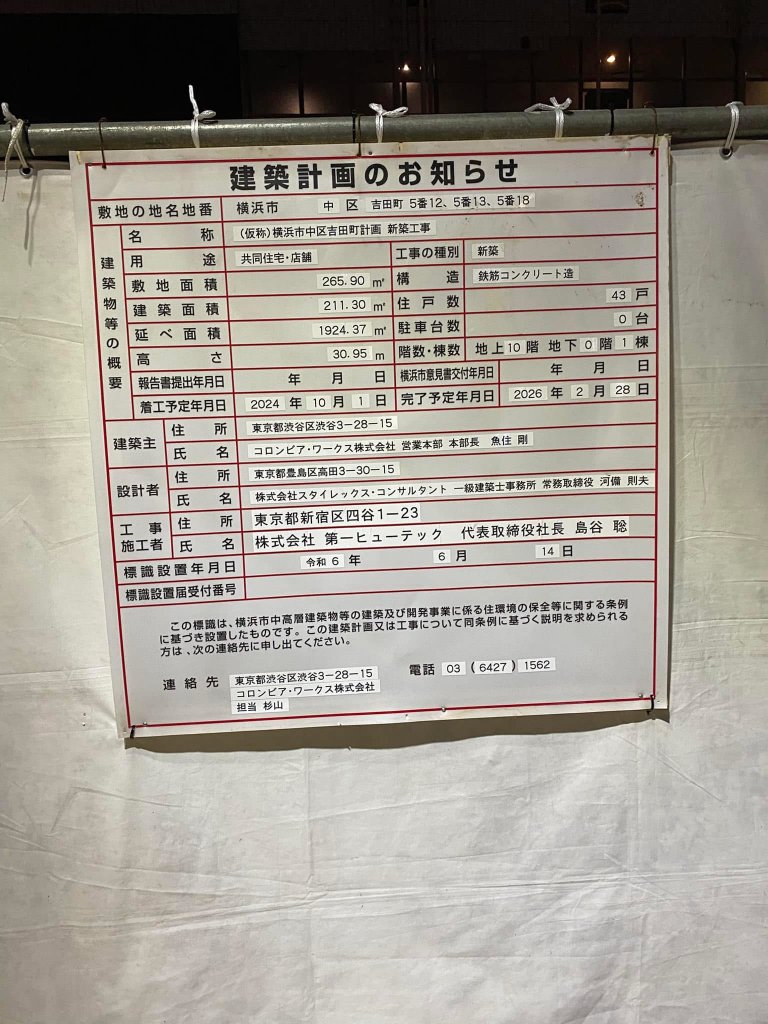 建築計画のお知らせ
敷地の地名地番 横浜市 中 区 吉田町 5番12、5番13、5番18
建築物等の概要
名称 (仮称)横浜市中区吉田町計画 新築工事
用途 共同住宅・店舗 工事の種別 新築
敷地面積 265.90 ㎡ 構造 鉄筋コンクリート造
建築面積 211.30 ㎡ 住戸数 43 戸
延べ面積 1924.37 ㎡ 駐車台数 0 台
高さ 30.95 m 階数・棟数 地上 10 階 地下 0 階 1 棟
報告書提出年月日 年 月 日 横浜市意見書交付年月日 年 月 日
着工予定年月日 2024 年 10 月 1 日 完了予定年月日 2026 年 2 月 28 日
建築主 住所 東京都渋谷区渋谷3-28-15
氏名 コロンビア・ワークス株式会社 営業本部 本部長 魚住 剛
設計者 住所 東京都豊島区高田3-30-15
氏名 株式会社スタイレックス・コンサルタント 一級建築士事務所 常務取締役 河備 則夫
工事施工者 住所 東京都新宿区四谷1-23
氏名 株式会社 第一ヒューテック 代表取締役社長 島谷 聡
標識設置年月日 令和 6 年 6 月 14 日
標識設置届受付番号
この標識は、横浜市中高層建築物等の建築及び開発事業に係る住環境の保全等に関する条例
に基づき設置したものです。この建築計画又は工事について同条例に基づく説明を求められる
方は、次の連絡先に申し出てください。
連絡先 東京都渋谷区渋谷3-28-15 電話 03 (6427) 1562
コロンビア・ワークス株式会社
担当 杉山